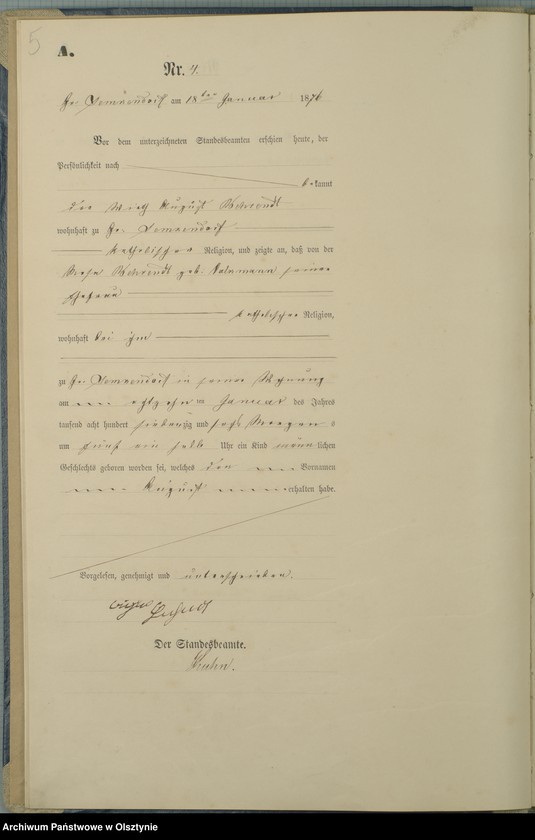 5
A.
Nr. 4.
Gr. am 18ten Januar 1876
Vor dem unterzeichneten Standesbeamten erschien heute, der
Persönlichkeit nach
bekannt
der Wirth August Behrendt
wohnhaft zu Gr.
katholischer Religion, und zeigte an, daß von der
Behrendt geb. seiner
Ehefrau
katholischer Religion,
wohnhaft bei ihm
zu Gr. in seiner Wohnung
am achtzehnten Januar des Jahres
tausend acht hundert siebenzig und sechs Morgens
um fünf ein halb Uhr ein Kind männlichen
Geschlechts geboren worden sei, welches den Vornamen
August erhalten habe.
Vorgelesen, genehmigt und unterschrieben.
Der Standesbeamte.
Kuhn.
Archiwum Państwowe w Olsztynie